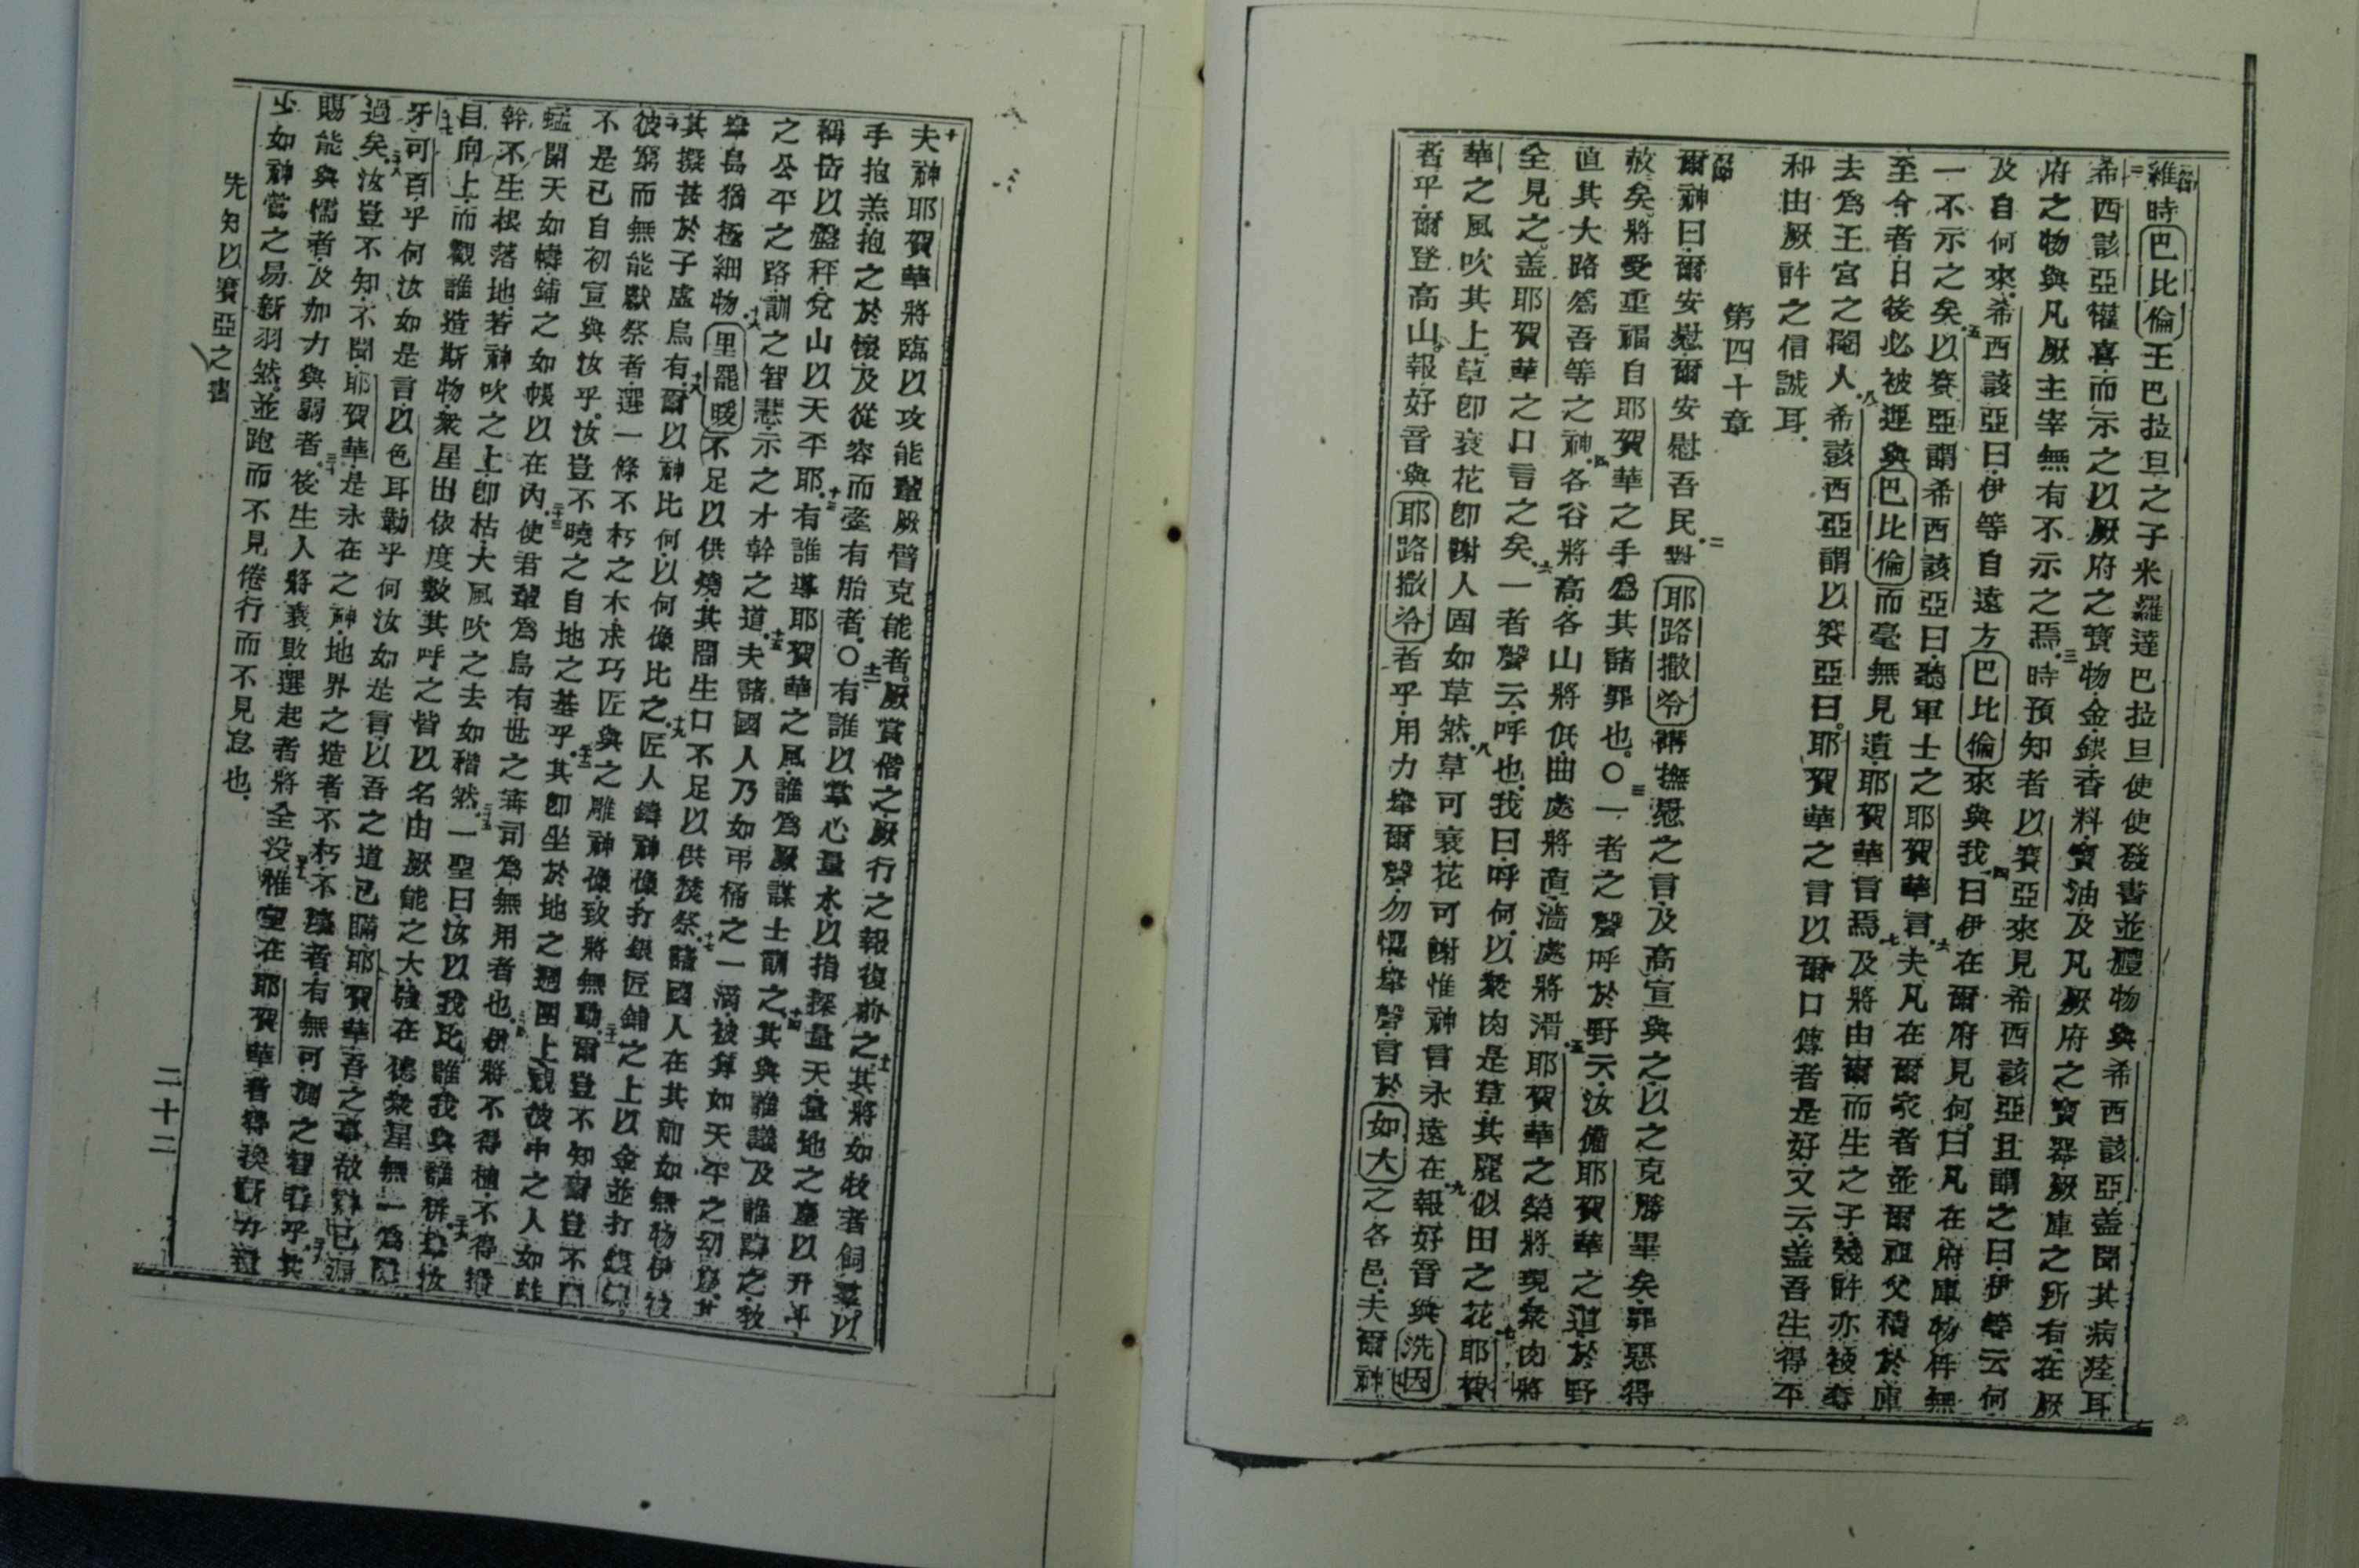 維時巴比倫王巴拉旦之子米羅達巴拉旦使使發書並禮物與希西該亞盖聞其病痊耳
希西該亞懽喜而示之以厥府之寶物金銀香料寶油及凡厥府之寶器厥庫之所有在厥
府之物與凡厥主宰無有不示之焉三時預知者以賽亞來見希西該亞且謂之曰伊等云何
及自何來希西該亞曰伊等自遠方巴比倫來與我四曰伊在爾府見何曰凡在府庫物件無
一不示之矣五以賽亞謂希西該亞曰聽軍士之耶賀華言六夫凡在爾家者並爾祖父積於庫
至今者日後必被運與巴比倫而毫無見遺耶賀華言焉七及將由爾而生之子幾許亦被奪
去為王宮之閹人八希該西亞謂以賽亞曰耶賀華之言以爾口傳者是好又云盖吾生得平
和由厥許之信誠耳
第四十章
爾神曰爾安慰爾安慰吾民二對耶路撒冷講撫慰之言及高宣與之以之克勝畢矣罪惡得
赦矣將受重福自耶賀華之手為其諸罪也〇三一者之聲呼於野云汝備耶賀華之道於野
直其大路為吾等之神四各谷將高各山將低曲處將直濇處將滑五耶賀華之榮將現衆肉將
全見之盖耶賀華之口言之矣六一者聲云呼也我曰呼何以衆肉是草其麗似田之花七耶賀
華之風吹其上草即衰花即謝人固如草然八草可衰花可謝惟神言永遠在九報好音與洗因
者乎爾登高山報好音與耶路撒冷者乎用力舉爾聲勿懼舉聲言於如大之各邑夫爾神
十夫神耶賀華將臨以攻能輩厥臂克能者厥賞偕之厥行之報復前之十一其將如牧者飼羣以
手抱羔抱之於懷及從容而牽有胎者〇十二有誰以掌心量水以指探量天量地之塵以升平
稱岳以盤秤兌山以天平耶十三有誰導耶賀華之風誰為厥謀士訓之十四其與誰議及誰教
之公平之路訓之智慧示之才幹之道十五夫諸國人乃如弔桶之一滴被算如天平之幼塵其
舉島猶極細物十六里罷暖不足以供燒其間生口不足以供焚祭十七諸國人在其前如無物伊被
其擬甚於子虛烏有十八爾以神比何以何像比之十九匠人鑄神像打銀匠鋪之上以金並打銀
二十彼窮而無能獻祭者選一條不朽之木求巧匠與之雕神像致將無動二十一爾豈不知爾豈不聞
不是已自初宣與汝乎汝豈不曉之自地之基乎二十二其即坐於地之週圍上觀彼中之人如
蜢開天如幬鋪之如帳以在內二十三使君輩為烏有世之審司為無用者也二十四伊將不得植不得
幹不生根落地若神吹之上即枯大風吹之去如稭然二十五一聖曰汝以我比誰我與誰併二十六汝
目向上而觀誰造斯物衆星出依度數其呼之皆以名由厥能之大強在德衆星無一為
牙可百乎何汝如是言以色耳勒乎何汝如是言以吾之道已瞞耶賀華吾之事
過矣二十八汝豈不知不聞耶賀華是永在之神地界之造者不朽不者有無可測之智
賜能與懦者及加力與弱者三十後生人將衰敗選起者將全沒惟望在耶賀華者得換新力
少如神鷹之易新羽然並跑而不見倦行而不見怠也
先知以賽亞之書
二十二